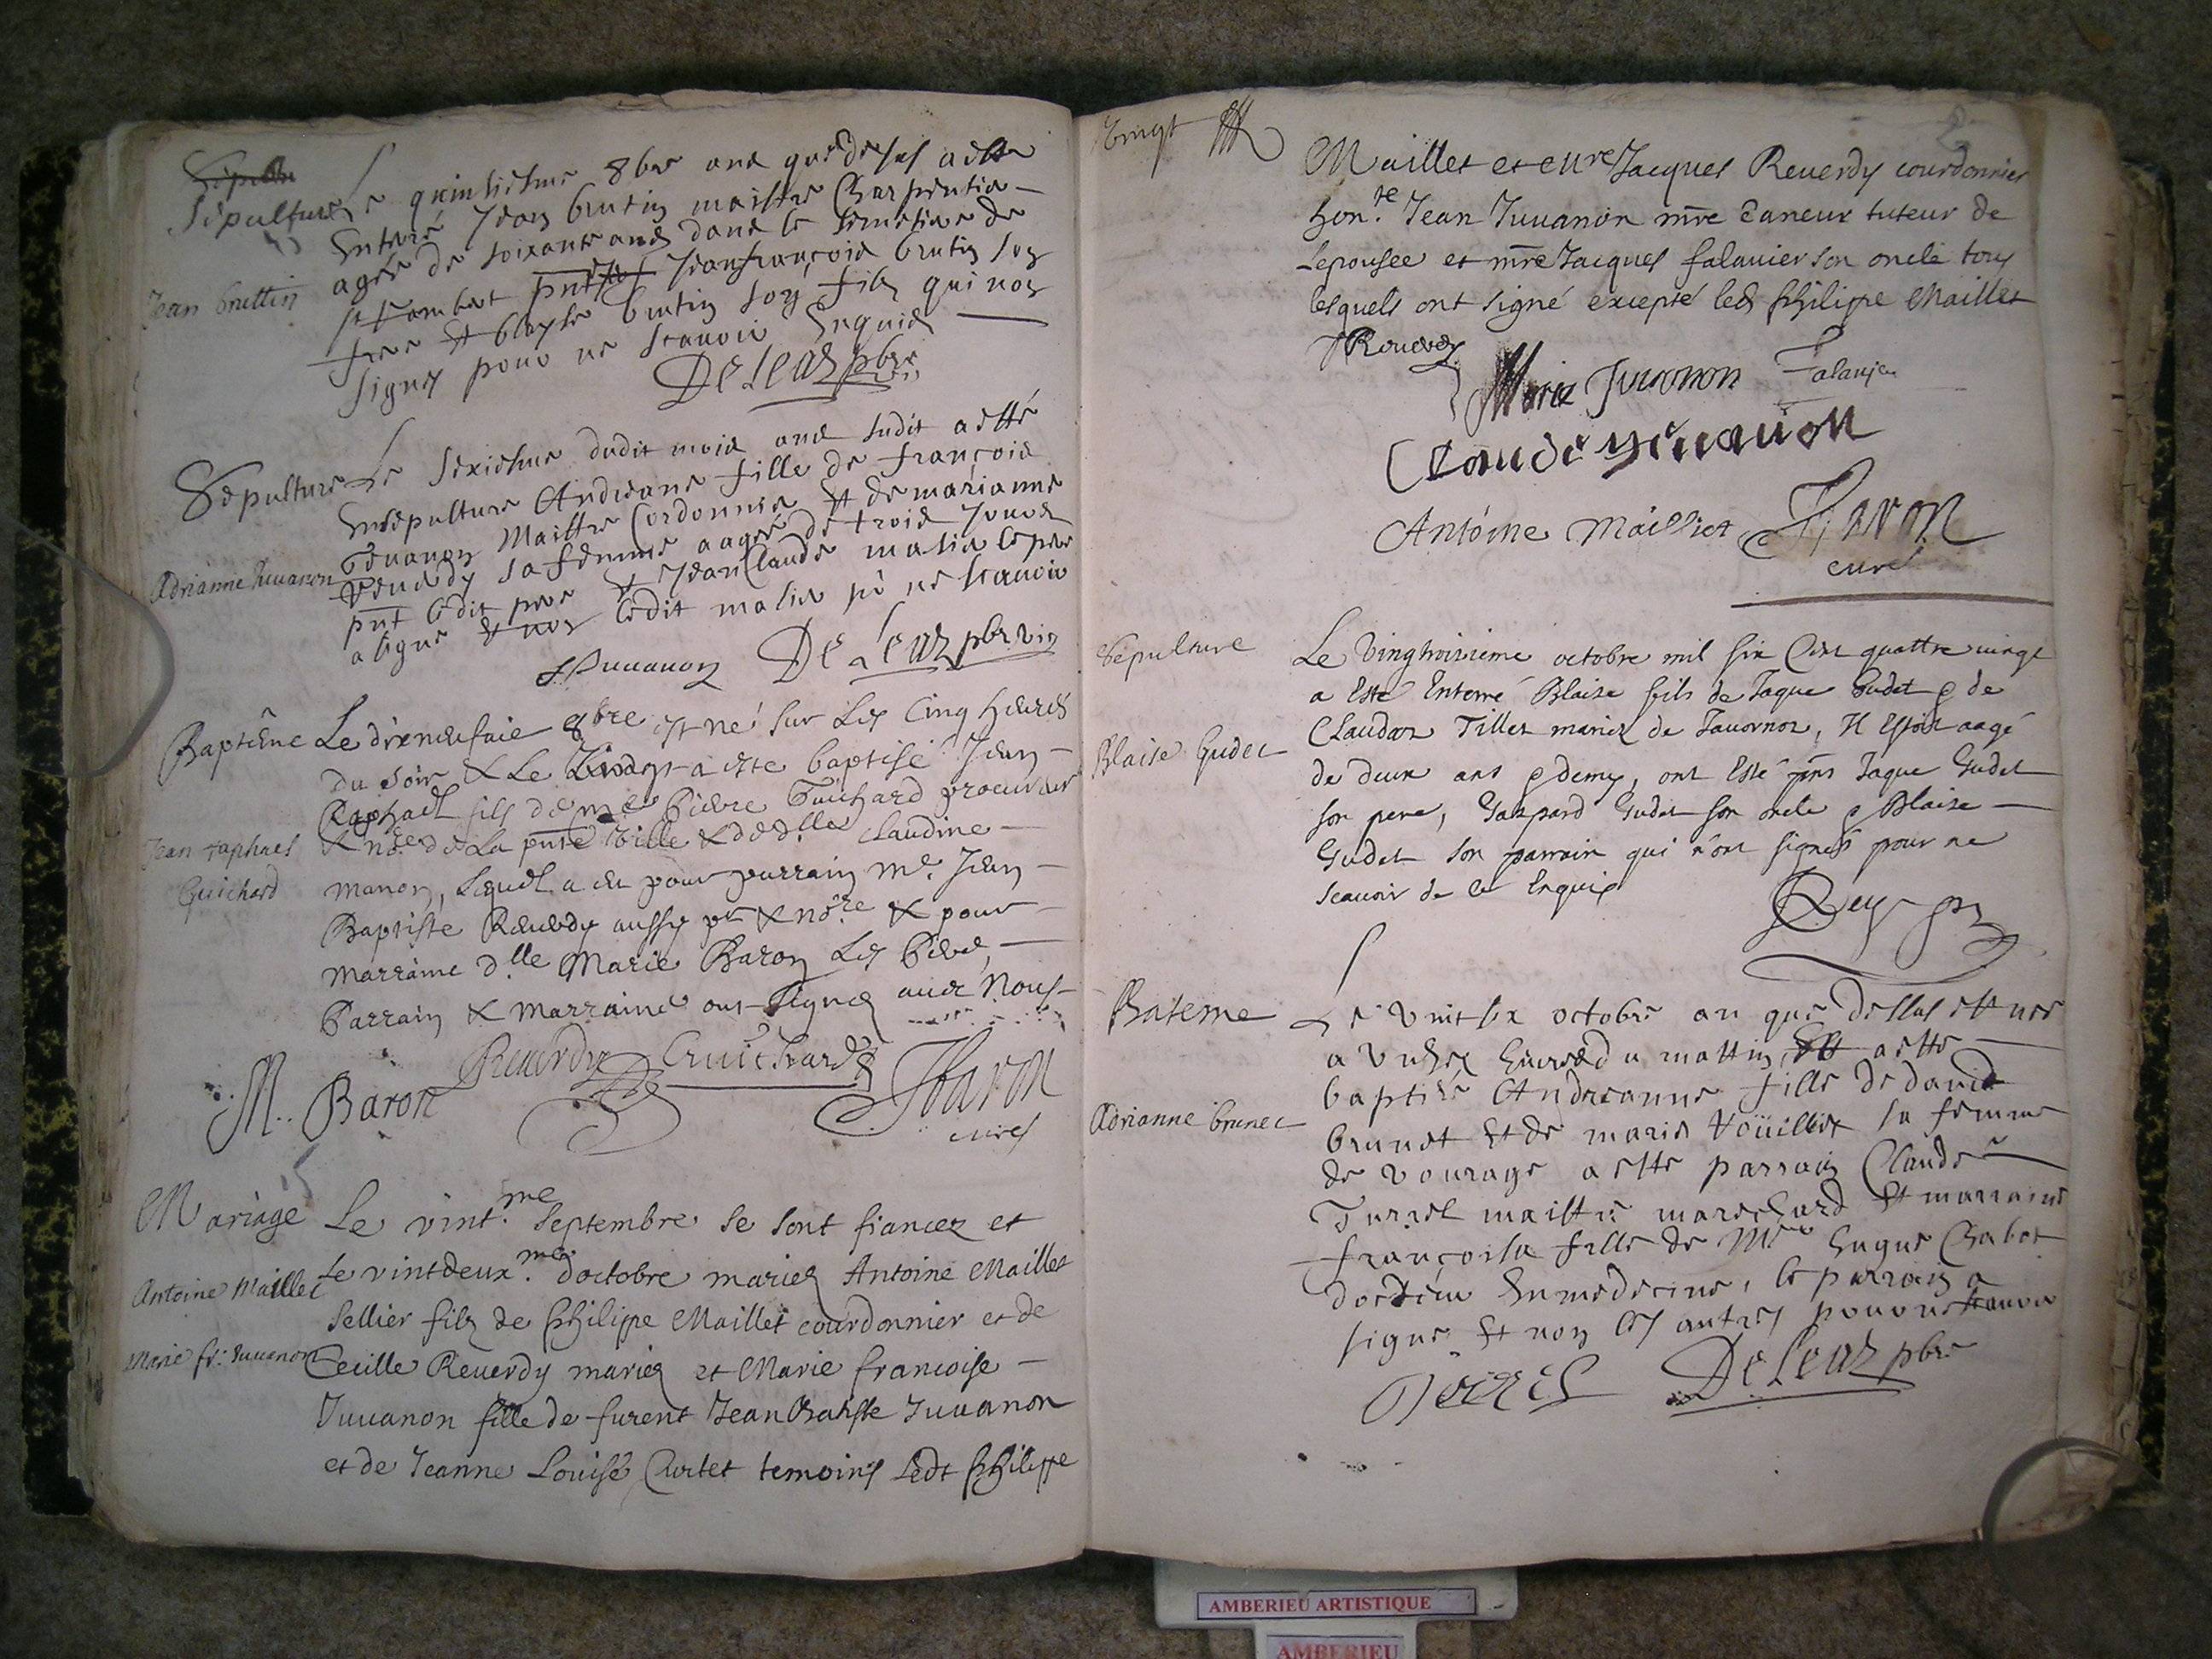 Sepulture Le quinsiesme 8bre and que desus a esté
Enterré Jean brutin maistre Charpentier
agée de soixante ans dans le simetiere de
Jean bruttin
st Sambert Jeanfrançois brutin son
frere Et blayse brutin son fils qui non
signés pour ne scavoir Enquis
De Lenz pbre
Sepulture Le sexiesme dudit mois and sudit a esté
Ensepulture Andreane fille de françois
Juvanon Maistre Cordonnier Et de marianne
Reverdy sa femme aagée de trois Jours
Adrianne Juvanon
pnt ledit pere Et Jean Claude le pere
a signé Et non ledit pò ne scavoir
Juvanon De Lenz pbr vic
Baptême Le dixneufuie 8bre est né sur Les Cinq heures
du soir & Le a este baptisé Jean
Raphaël fils de me Pierre Guichard procureur
Jean raphael
Guichard
& nore de La pnte Ville & de dlle Claudine
manon, Lequel a eu pour parrain Me. Jean
Baptiste Reverdy aussy pr & nore & pour
marraine dlle Marie Baron Les Pere,
Parrain & marraine ont signez avec Nous
M. Baron Reverdy Guichard Favon
curé
Mariage Le vint.me Septembre se sont fiancez et
le vintdeux.me doctobre mariez Antoine Maillet
Antoine Maillet
Sellier filz de Philippe Maillet courdonnier et de
Marie fr. Juuanon
Ceuille Reuerdy mariez et Marie francoise
Juuanon fille de furent Jean Batiste Juuanon
et de Jeanne Louise Curtet temoins Ledt Philippe
Vingt
Maillet et eure Jacques Reuerdy courdonnier
hon.re Jean Juuanon mre taneur tuteur de
Lepousee et mre Jacques falauier son oncle tous
lesquels ont signé excepté leds Philippe Maillet
& Reuerdy
Marie Juuonon Falavje
Claude Antoine Mailliet Favon
curé
Sepulture
Le Vingtroisieme octobre mil six Cens quattre vingt
a Esté Enterré Blaise fils de Jaque Gudet & de
Claudaz Tillet mariez de Tauornoz, Il Estoit aagé
Blaise Gudet
de deux ans & demy, ont Esté pns Jaque Gudet
son pere, Gaspard Gudet son oncle & Blaise
Gudet son parrain qui n'ont signés pour ne
scauoir de ce Enquis
Bateme
Le vint six octobre an que dessus est nee
a unze heures du mattin a este
baptisée Andreanne fille de david
Adrianne brunet
brunet Et de marie Voüillet sa femme
de vourage a este parrain Claude
Turrel maistre marechard Et marraine
françoise fille de Mre hugue Chabot
docteur En medecine, le parrain a
signé Et non les autres pour ne scauoir
De Lenz pbre
AMBERIEU ARTISTIQUE
AMBERIEU